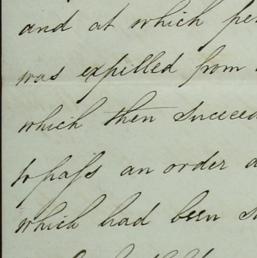 and at which per
was expelled from
which then succeed
to pass an order a
which had been s